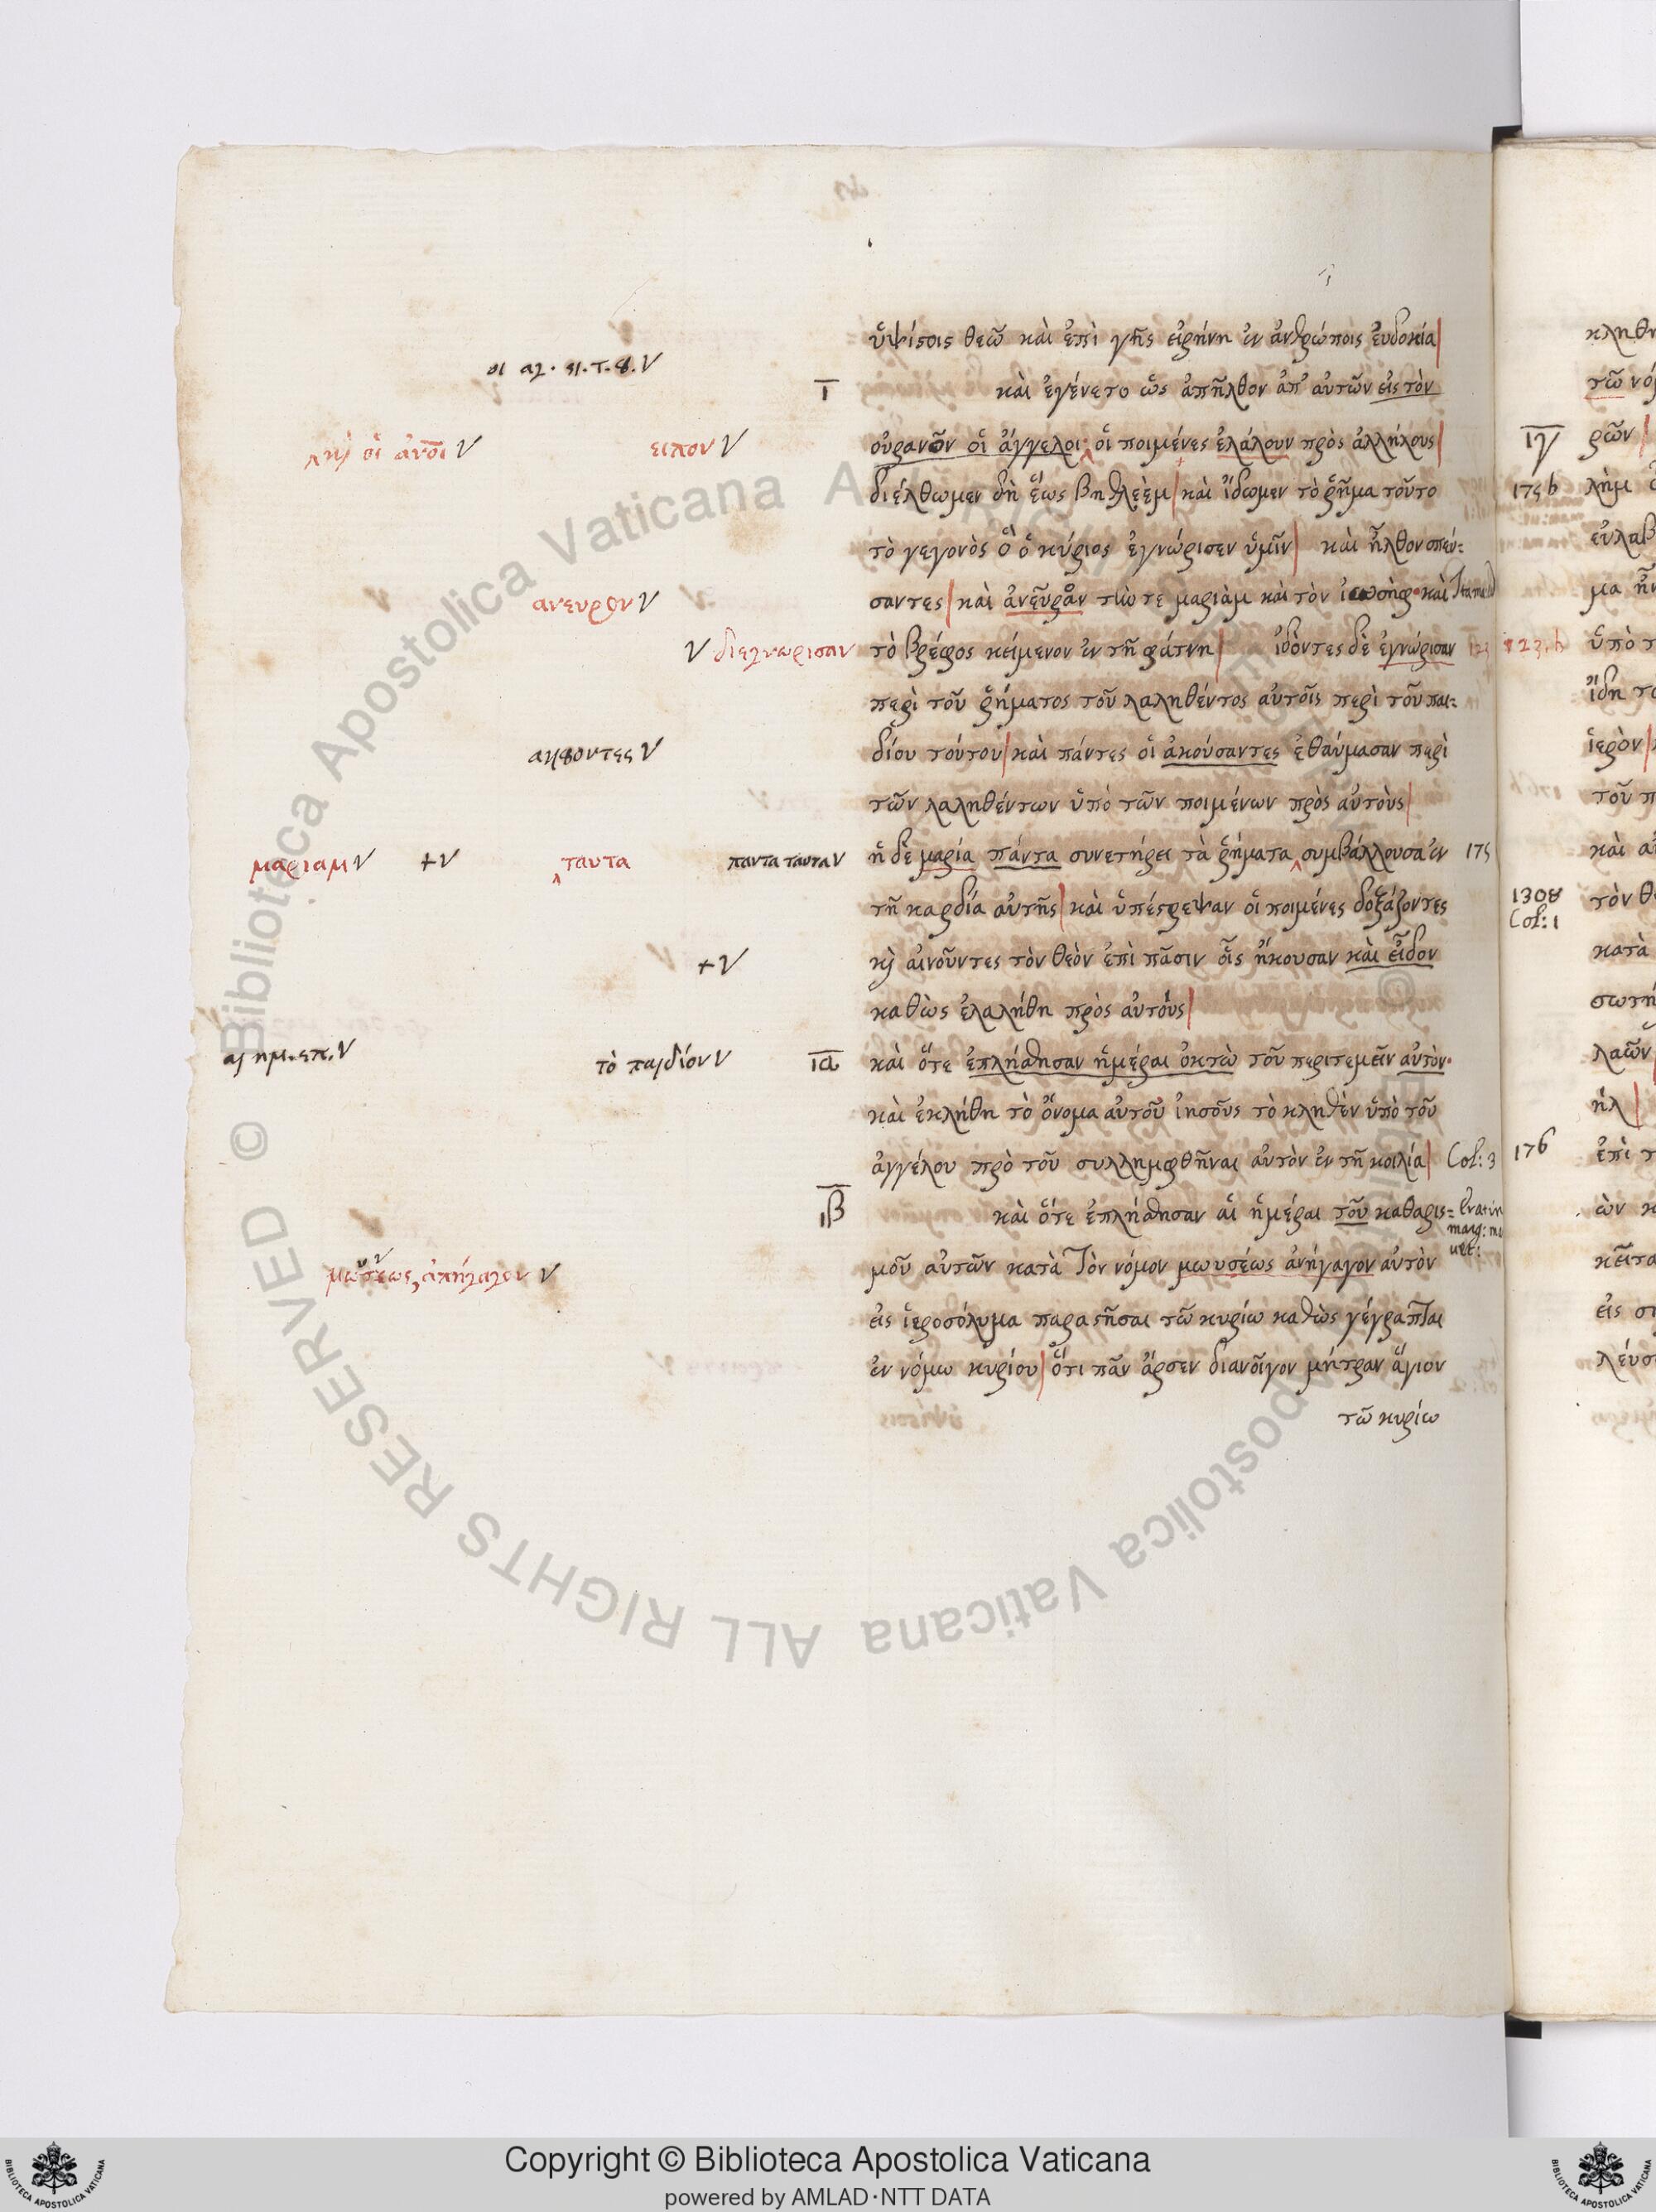 ὑψίστοις θεῶ καὶ ἐπὶ γῆς εἰρήνη ἐν ἀνθρώποις εὐδοκία
οι αγ. ει. τ. ȣ. V
Ι καὶ ἐγένετο ὡς ἀπῆλθον ἀπ' αὐτῶν εἰς τὸν
κ̀ οἱ ἀνοι V ειπον V
οὐρανὸν οἱ ἄγγελοι· οἱ ποιμένες ἐλάλουν πρὸς ἀλλήλους
διέλθωμεν δὴ ἕως βηθλεὲμ καὶ ἴδωμεν τὸ ῥῆμα τοῦτο
τὸ γεγονὸς ὃ ὁ κύριος ἐγνώρισεν ὑμῖν καὶ ἦλθον σπεύ=
ανευρον V
σαντες καὶ ἀνεῦραν τήν τε μαριὰμ καὶ τὸν ἰωσὴφ· καὶ
V διεγνωρισαν
τὸ βρέφος κείμενον ἐν τῆ φάτνη ἰδόντες δὲ ἐγνώρισαν
περὶ τοῦ ῥήματος τοῦ λαληθέντος αὐτοῖς περὶ τοῦ παι=
ακȣοντες V
δίου τούτου καὶ πάντες οἱ ἀκούσαντες ἐθαύμασαν περὶ
τῶν λαληθέντων ὑπὸ τῶν ποιμένων πρὸς αὐτοὺς
μαριαμ V +V ταυτα παντα ταυτα V
ἡ δὲ μαρία πάντα συνετήρει τὰ ῥήματα συμβάλλουσα ἐν 175
τῆ καρδία αὐτῆς καὶ ὑπέστρεψαν οἱ ποιμένες δοξάζοντες
+V
κ̀ αἰνοῦντες τὸν θεὸν ἐπὶ πᾶσιν οἷς ἤκουσαν καὶ εἶδον
καθὼς ἐλαλήθη πρὸς αὐτούς
αι ημ. επ. V τὸ παιδίον V
ΙΑ καὶ ὅτε ἐπλήσθησαν ἡμέραι ὀκτὼ τοῦ περιτεμεῖν αὐτὸν·
καὶ ἐκλήθη τὸ ὄνομα αὐτοῦ ἰησοῦς τὸ κληθὲν ὑπὸ τοῦ
ἀγγέλου πρὸ τοῦ συλλημφθῆναι αὐτὸν ἐν τῆ κοιλία Col: 3
ΙΒ καὶ ὅτε ἐπλήσθησαν αἱ ἡμέραι τοῦ καθαρισ=
ἀπήγαγον V
μοῦ αὐτῶν κατὰ τὸν νόμον μωυσέως ἀνήγαγον αὐτὸν
εἰς ἱεροσόλυμα παραστῆσαι τῶ κυρίω καθὼς γέγραπται
ἐν νόμω κυρίου ὅτι πᾶν ἄρσεν διανοῖγον μήτραν ἅγιον
τῶ κυρίω
τῶ
ΙΓ ρῶν
175 b λὴμ
ὑπὸ
ἱερὸν
τοῦ
καὶ
1308
Col: 1
τὸν
κατὰ
λαῶν
ήλ
176 ἐπὶ
εἰς
© Biblioteca Apostolica Vaticana ALL RIGHTS RESERVED
Copyright © Biblioteca Apostolica Vaticana
powered by AMLAD·NTT DATA
BIBLIOTECA APOSTOLICA VATICANA
BIBLIOTECA APOSTOLICA VATICANA